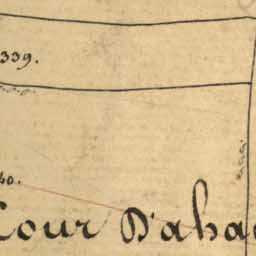 339.
40.
Cour D'aba